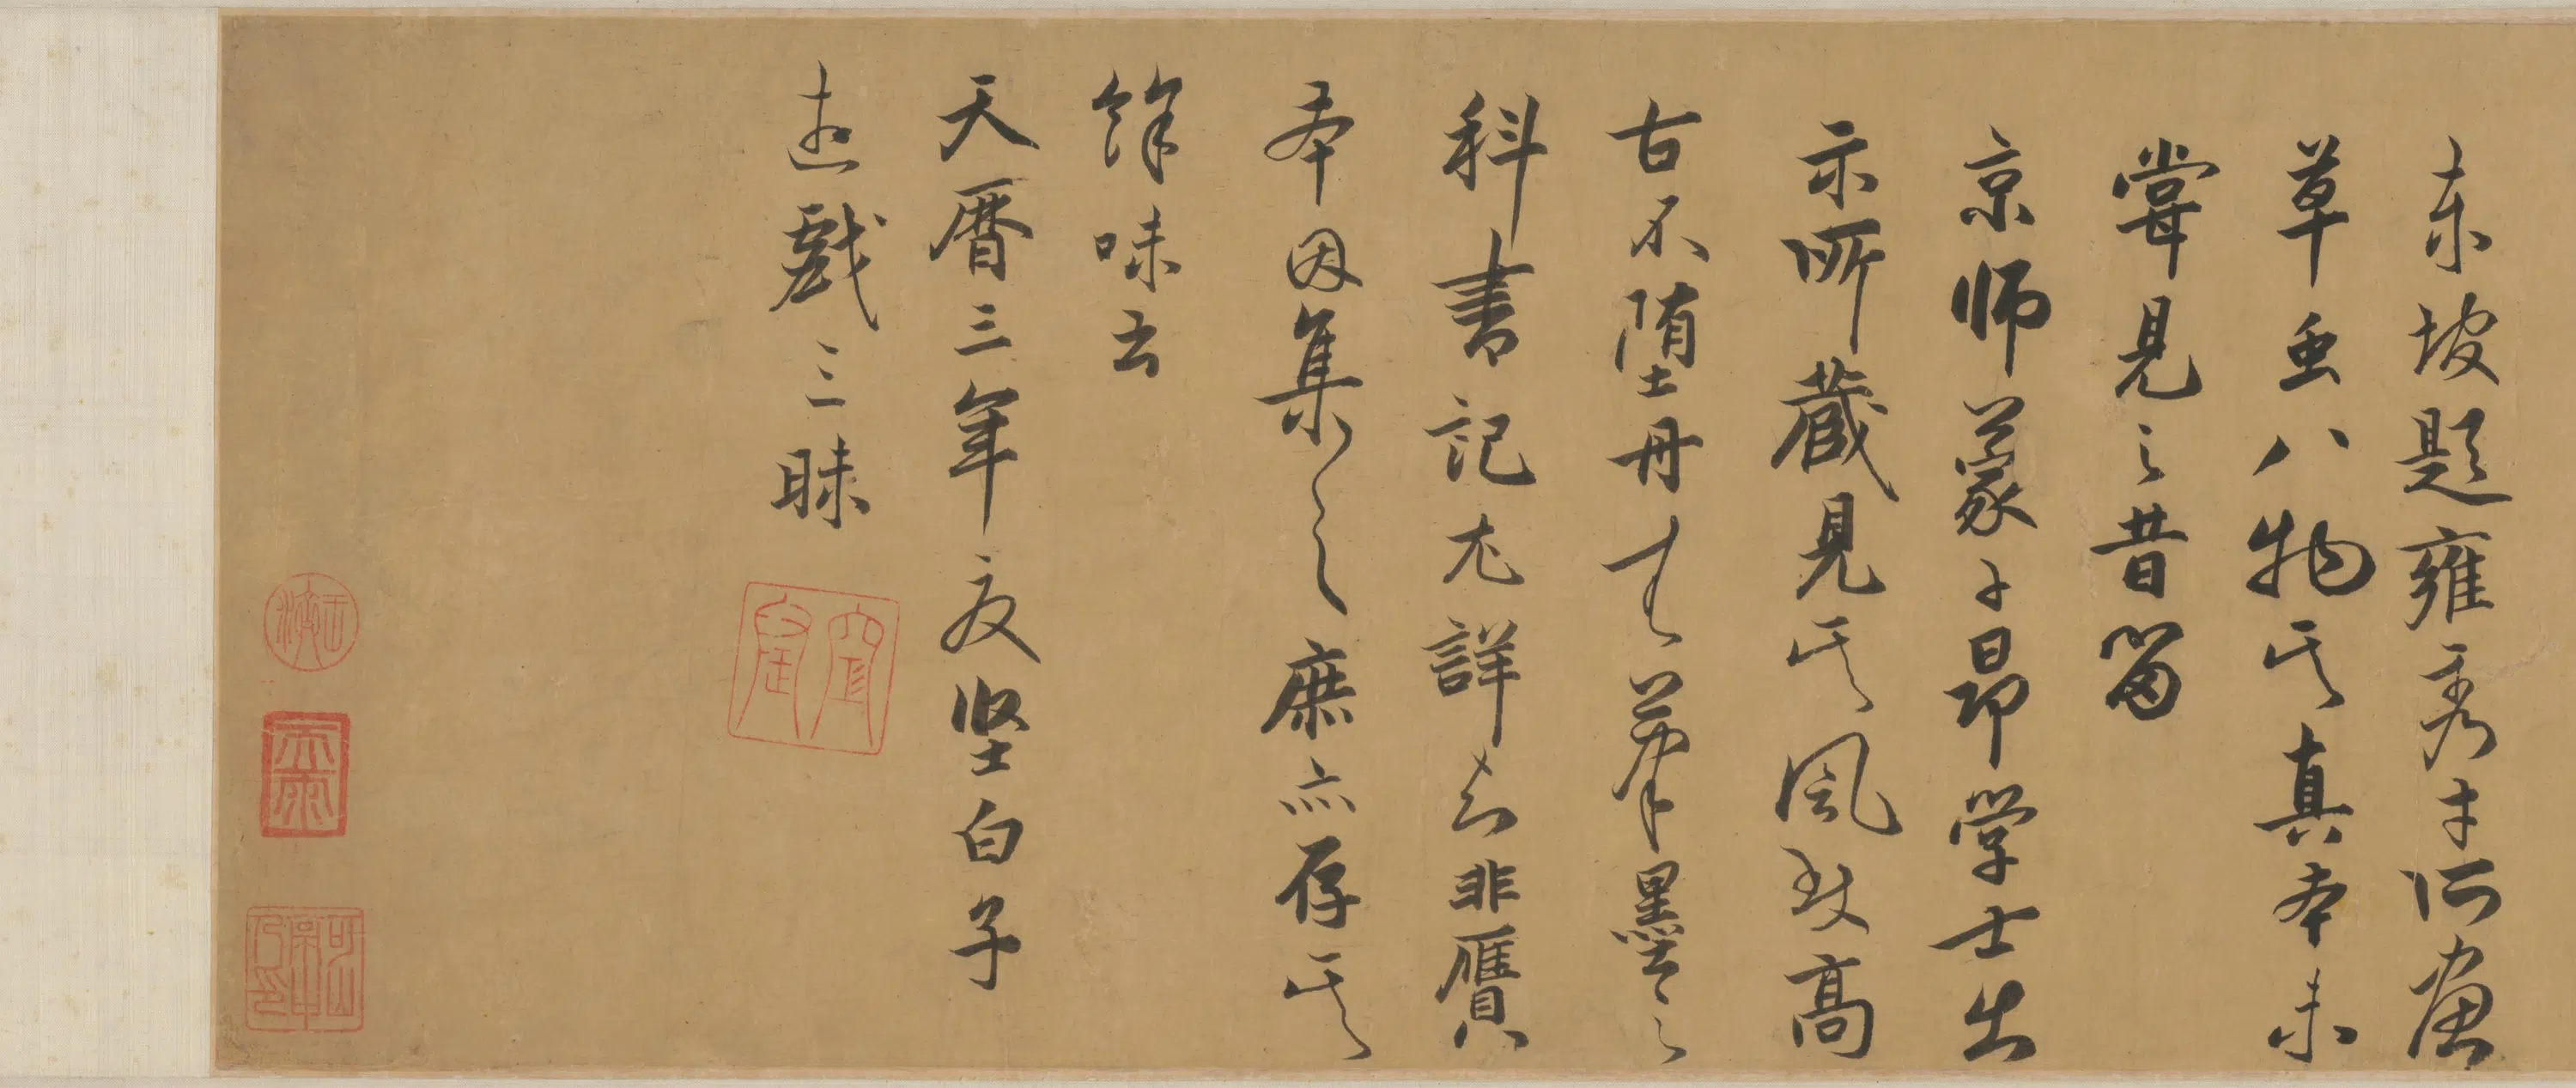 東坡題雍秀才所畫
草虫八物其真本未
甞見之昔留
京师蒙子昂学士出
示所蔵見其風致髙
古不堕丹青筆墨之
科書記尤詳知非贋
本因集之庶亦存其
餘味云
天曆三年夏堅白子
遊戲三昧